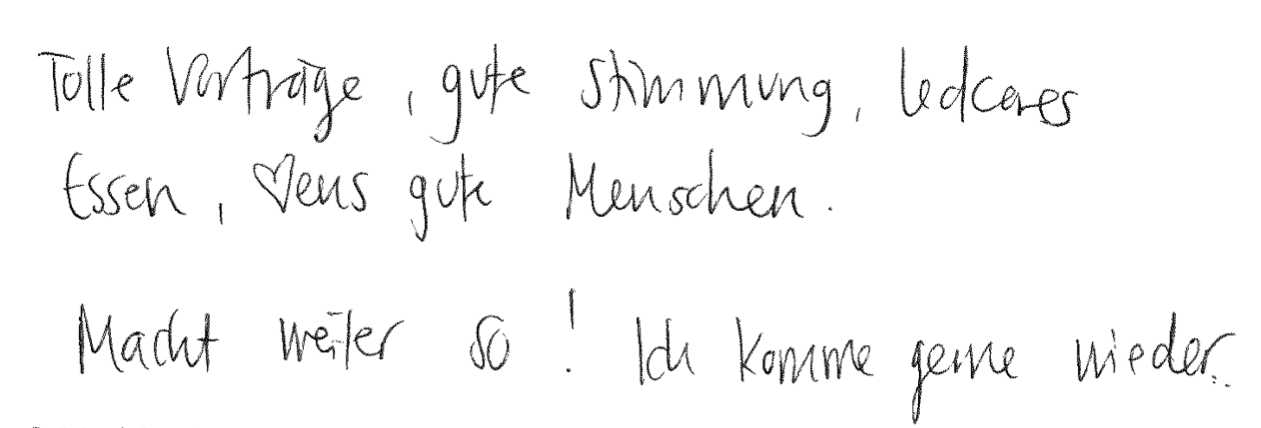 Tolle Vorträge, gute Stimmung, leckeres
Essen, ♡ens gute Menschen.
Macht weiter so! Ich komme gerne wieder..